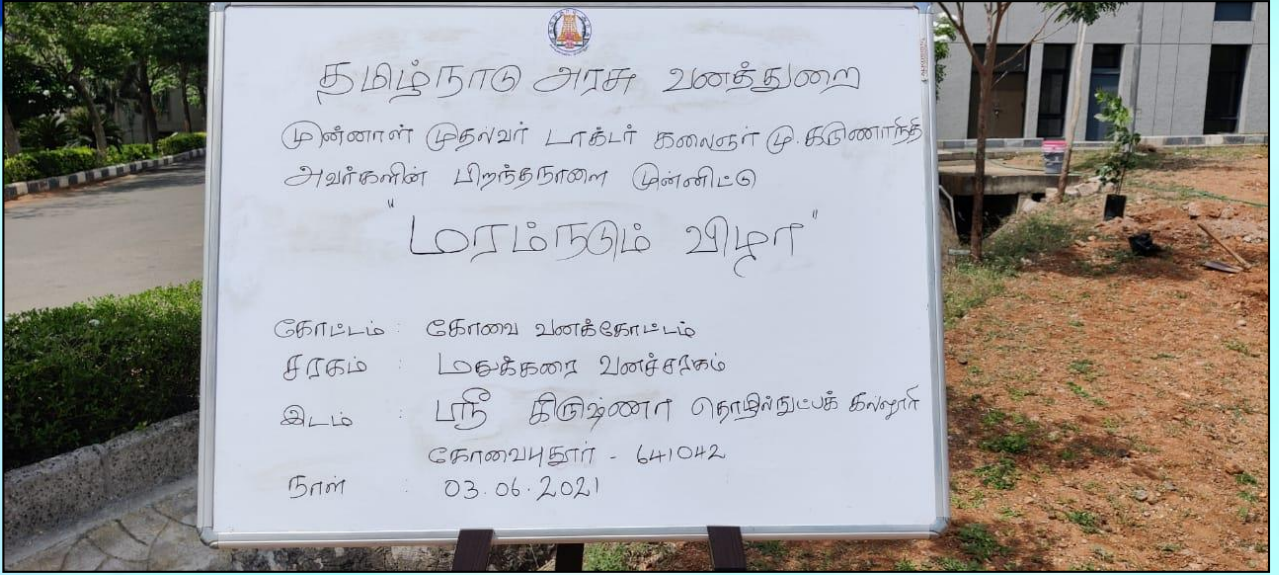 தமிழ்நாடு அரசு வனத்துறை
முன்னாள் முதல்வர் டாக்டர் கலைஞர் மு. கருணாநிதி
அவர்களின் பிறந்தநாளை முன்னிட்டு
"மரம்நடும் விழா"
கோட்டம் : கோவை வனக்கோட்டம்
சரகம் : மதுக்கரை வனச்சரகம்
இடம் : ஸ்ரீ கிருஷ்ணா தொழில்நுட்பக் கல்லூரி
கோவைபுதூர் - 641042
நாள் : 03.06.2021